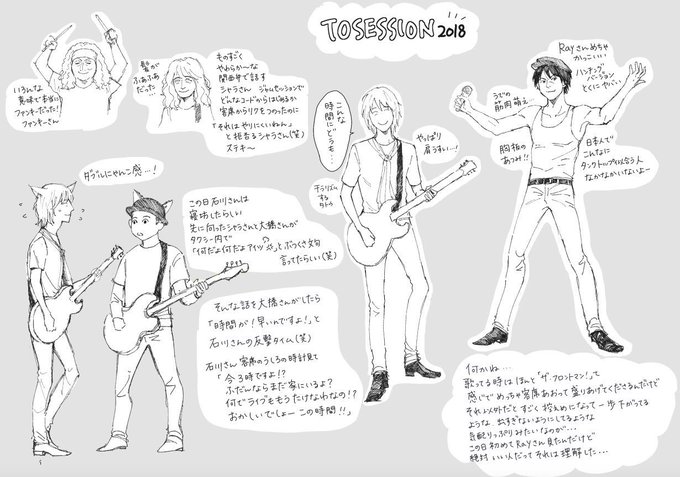 TOSESSION 2018
いろんな
意味で本当に
ファンキーだった!
ファンキーさん
髪が
ふあふあ
だった
ものすごく
やわらか〜な
関西弁で話す
シャラさん ジャムセッションで
どんなコードからはじめるか
客席からリクをつのったのに
「それはやりにくいねん」
と拒否るシャラさん(笑)
ステキ〜
こんな
時間にどうも…
やっぱり
肩うすい…!
チラリズム
する
タトゥ
Rayさんめちゃ
かっこいい
ハンチング
バージョン
とくにヤバい
うでの
筋肉萌え
胸板の
あつみ!!
日本人で
こんなに
タンクトップ似合う人
なかなかいないよー
ダブルにゃんこ感…!
この日石川さんは
寝坊したらしい
先に向ったシャラさんと大橋さんが
タクシー内で
「何だよ何だよアイツ」とぶつくさ文句
言ってたらしい(笑)
そんな話を大橋さんがしたら
「時間が!早いんですよ!」と
石川さんの反撃タイム(笑)
石川さん 客席のうしろの時計見て
「今3時ですよ!?
ふだんならまだ家にいるよ?
何でライブももうたけなわなの!?
おかしいでしょー この時間!!」
何かね…
歌ってる時はほんと「ザ・フロントマン!」って
感じでめっちゃ客席あおって盛りあげてくださるんだけど
それ以外だとすごく控えめになって一歩下がってる
ような、出すぎないようにしてるような
気配りっぷりみたいなのが…
この日初めてRayさん見たんだけど
絶対いい人だってそれは理解した…